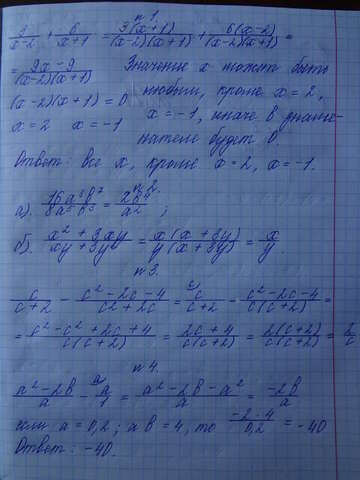 n 1.
3/(x-2) + 6/(x+1) = 3(x+1)/((x-2)(x+1)) + 6(x-2)/((x-2)(x+1)) =
= (9x-9)/((x-2)(x+1)) Значение x может быть
(x-2)(x+1) = 0 любым, кроме x = 2,
x = 2 x = -1 x = -1, иначе в знаме-
нателе будет 0.
Ответ: все x, кроме x = 2, x = -1.
n 2.
б). (x² + 3xy)/(xy + 3y²) = x(x+3y)/(y(x+3y)) = x/y.
n 3.
c/(c+2) - (c²-2c-4)/(c²+2c) = c/(c+2) - (c²-2c-4)/(c(c+2)) =
= (c²-c²+2c+4)/(c(c+2)) = (2c+4)/(c(c+2)) = 2(c+2)/(c(c+2)) = 2/c
n 4.
(a²-2b)/a - a/1 = (a²-2b-a²)/a = -2b/a
если a = 0,2; а b = 4, то (-2·4)/0,2 = -40
Ответ: -40.